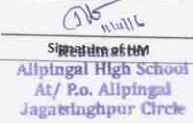 11/4/16
Signature of HM
Headmaster
Alipingal High School
At/ P.o. Alipingal
Jagatsinghpur Circle